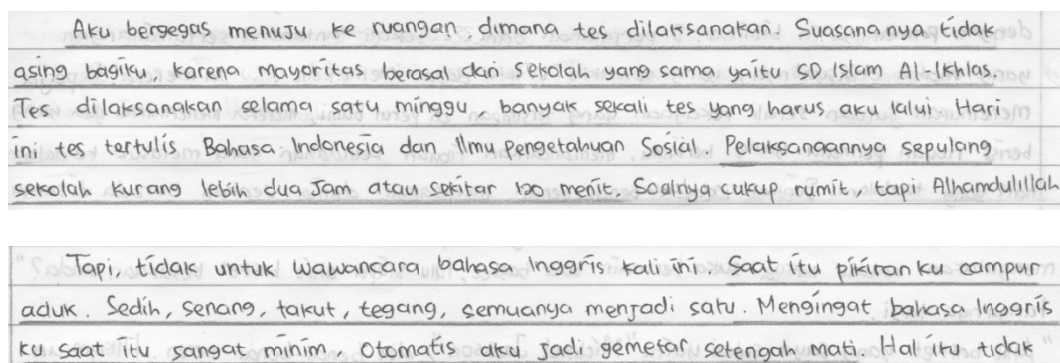 Aku bergegas menuju ke ruangan dimana tes dilaksanakan. Suasananya tidak
asing bagiku, karena mayoritas berasal dari sekolah yang sama yaitu SD Islam Al-Ikhlas.
Tes dilaksanakan selama satu minggu, banyak sekali tes yang harus aku lalui. Hari
ini tes tertulis Bahasa Indonesia dan Ilmu Pengetahuan Sosial. Pelaksanaannya sepulang
sekolah kurang lebih dua jam atau sekitar 120 menit. Soalnya cukup rumit, tapi Alhamdulillah
Tapi, tidak untuk wawancara bahasa Inggris kali ini. Saat itu pikiran ku campur
aduk. Sedih, senang, takut, tegang, semuanya menjadi satu. Mengingat bahasa Inggris
ku saat itu sangat minim, otomatis aku jadi gemetar setengah mati. Hal itu tidak